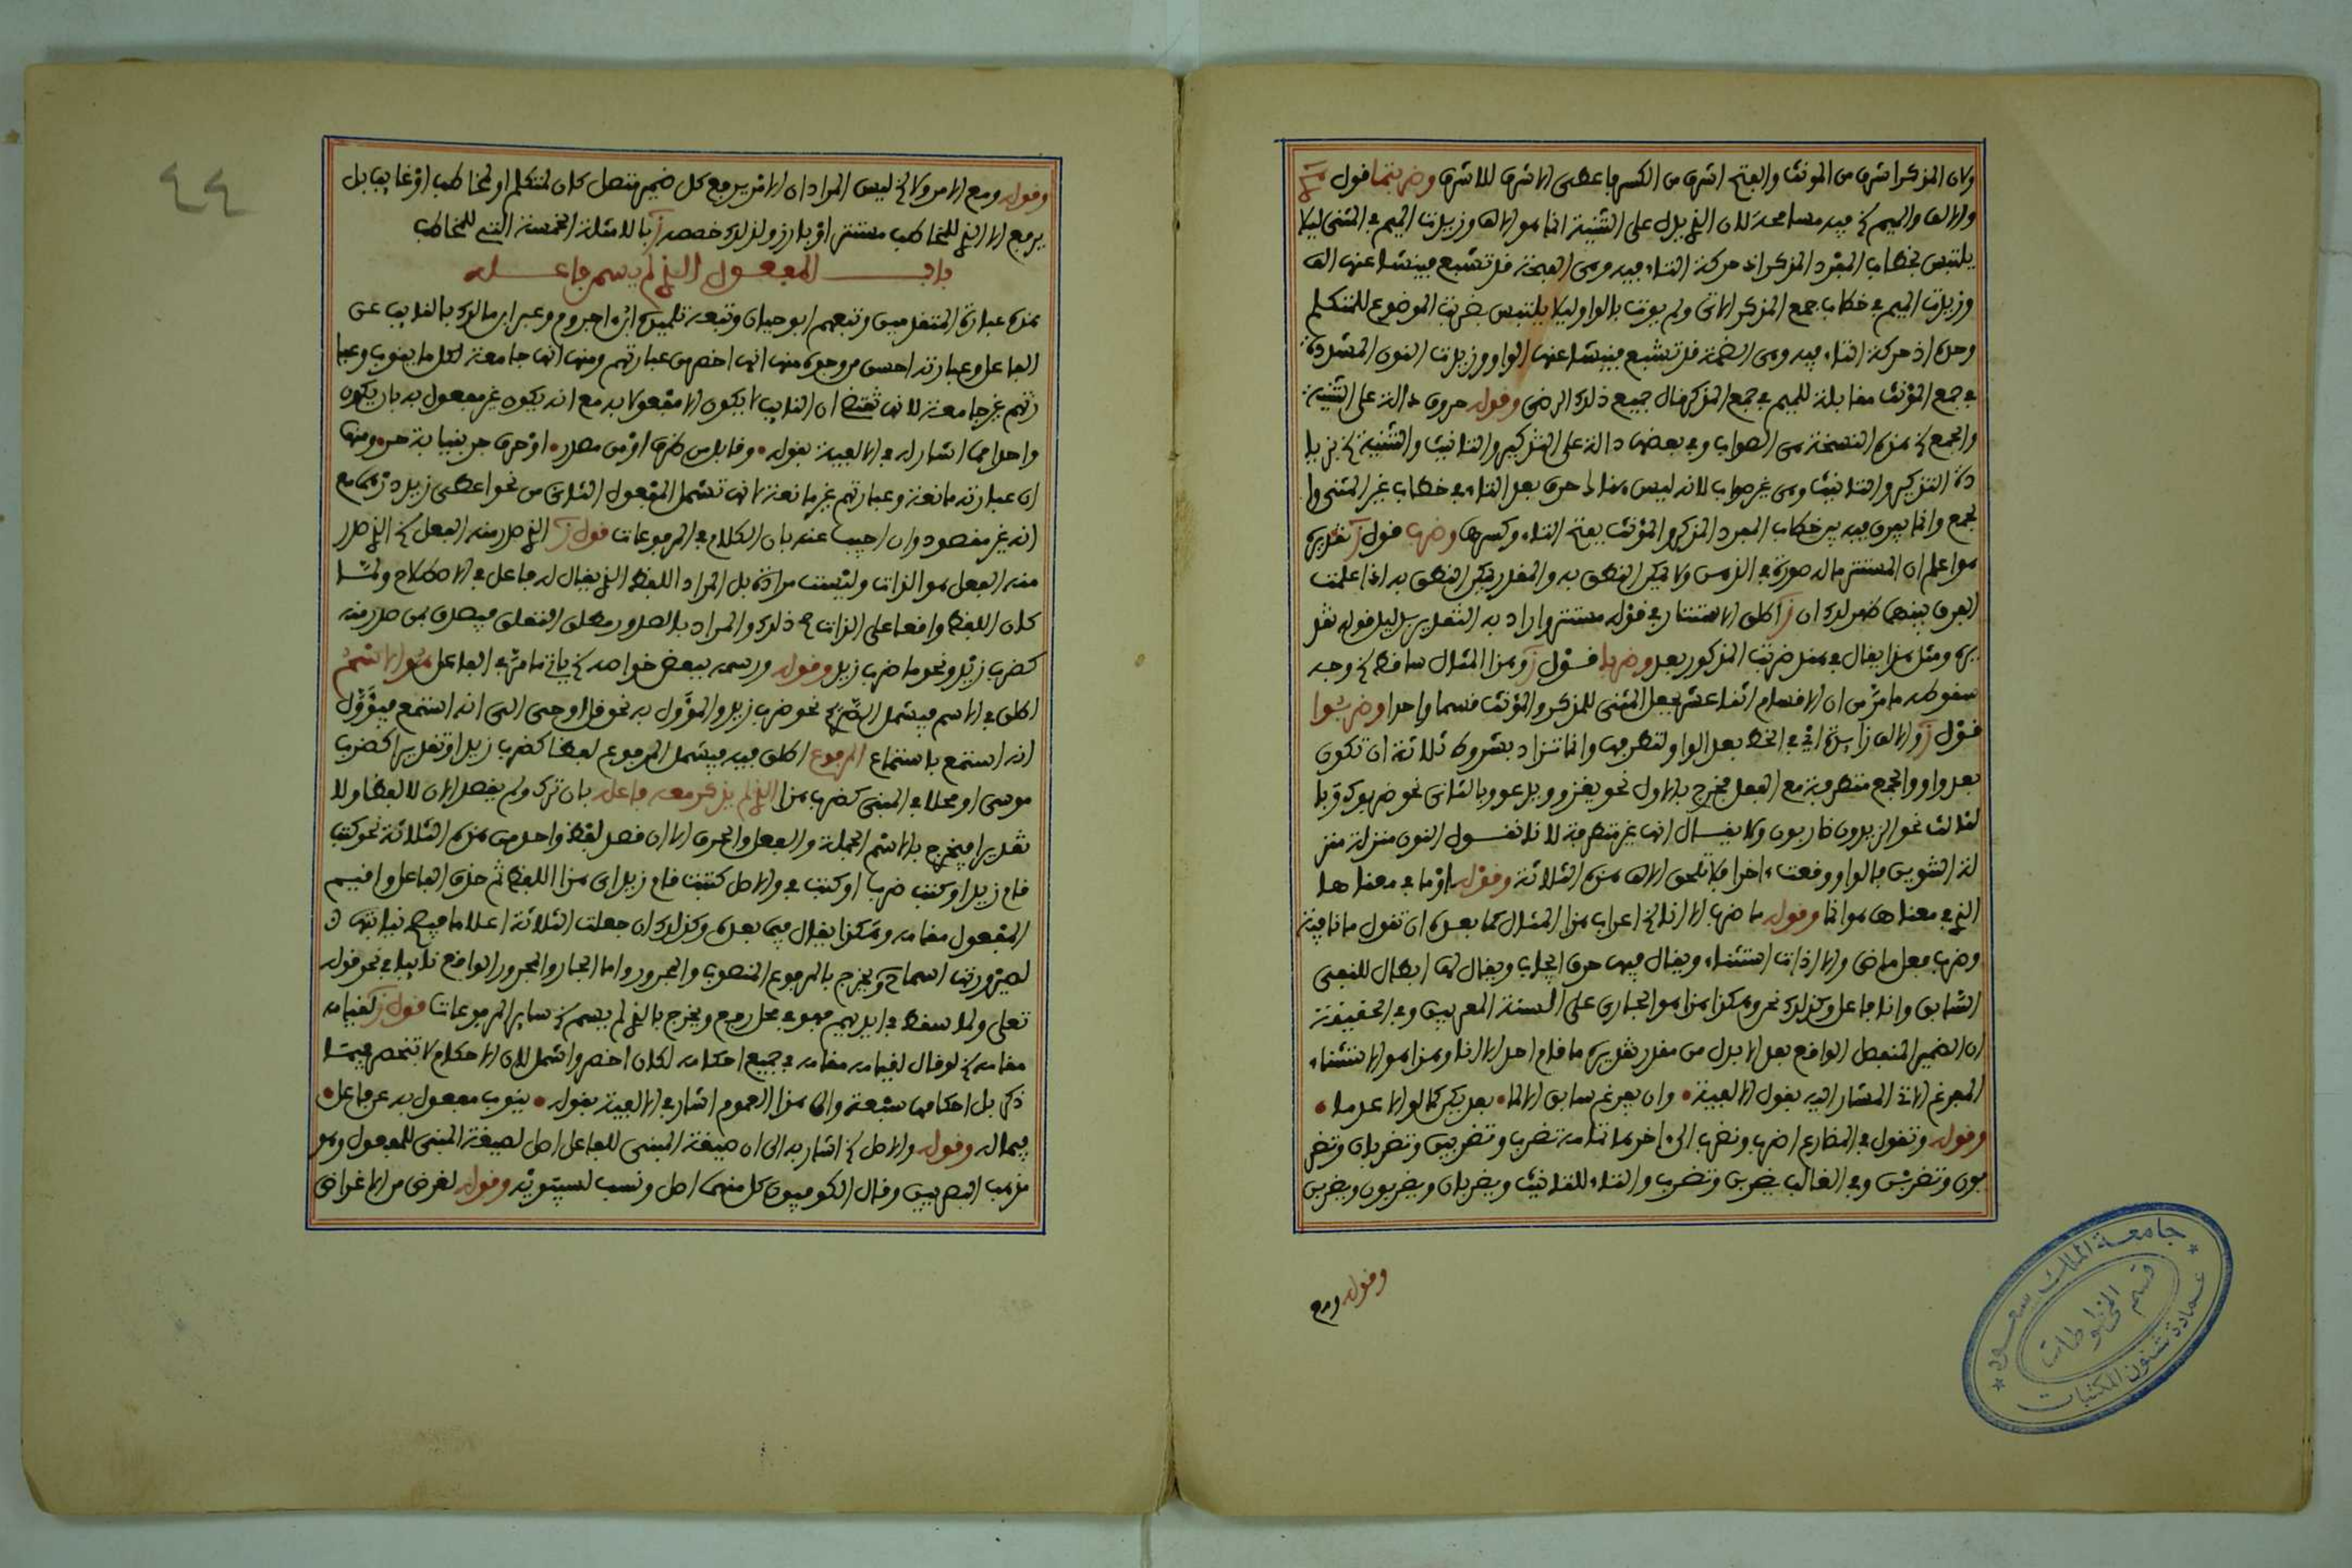 ولان المذكر اشرف من المونث والفتح اشرف من الكسر فاعطى الاشرف للاشرف وضربتما قول ش
والالف والميم فيه مسامحة لان الذي يدل على التثنية انما هو الالف وزيدت الميم في المثنى ليلا
يلتبس بخطاب المفرد المذكر اذ حركة التاء فيه وهي الفتحة قد تشبع فينشا عنها الف
وزيدت الميم في خطاب جمع المذكر الاتي ولم يوت بالواو ليلا يلتبس بضربت الموضوع للمتكلم
وحده اذ حركة التاء فيه وهي الضمة قد تشبع فينشا عنها الواو وزيدت النون المشددة
في جمع المؤنث مقابلة للميم في جمع المذكر قال جميع ذلك الرضي وقوله حروف دالة على التثنية
والجمع هذه النسخة هي الصواب وفي بعضها دالة على التذكير والتانيث والتثنية بزيا
دة التذكير والتانيث وهي غير صواب لانه ليس هنا حرف بعد التاء في خطاب غير المثنى وا
لجمع وانما يعرف فيه خطاب المفرد المذكر والمؤنث بفتح التاء وكسرها وضرب قول ز تقديره
هو اعلم ان المستتر ماله صورة في الذهن ولا يمكن النطق به والمقدر يمكن النطق به اذا علمت
الفرق بينهما ظهر لك ان ز اطلق الاستتار في قوله مستتر واراد به التقدير بدليل قوله تقد
يره ومثل هذا يقال في مثل ضربت المذكور بعد وضربا قول ز وهذا المثال ساقط وجه
سقوطه ما مر من ان الاقسام اثنا عشر بجعل المثنى للمذكر والمؤنث قسما واحدا وضربوا
قول ز والالف زايدة اي في الخط بعد الواو لتطرفها وانما تزاد بشروط ثلاثة ان تكون
بعد واو الجمع متطرفة مع الفعل فخرج بالاول نحو يغزو ويدعو وبالثاني نحو ضربوك وبا
لثالث نحو الزيدون ضاربون ولا يقال انها غير متطرفة لانا نقول النون منزلة منز
لة التنوين فالواو وقعت اخرا فلا تلحق الالف هذه الثلاثة وقوله او ما في معناها
الذي في معناها هو انما وقوله ما ضرب الا انا اعراب هذا المثال كما بعده ان تقول ما نافية
وضرب فعل ماض والا اداة استثناء ويقال فيها حرف ايجاب ويقال لها ابطال للنفي
السابق وانا فاعل وكذلك نحن وهكذا هذا هو الجاري على السنة المعربين وفي الحقيقة
ان الضمير المنفصل الواقع بعد الا بدل من مقدر تقديره ما قام احد الا انا وهذا هو الاستثناء
المفرغ الاتي المشار اليه بقول الالفية • وان يفرغ سابق الا لما • بعد يكن كما لو الا عدما •
وقوله وتقول في المضارع اضرب ونضرب الى اخر ما تمامه تضرب وتضربين وتضربان وتضر
بون وتضربن وفي الغائب يضرب وتضرب والتاء للتانيث ويضربان ويضربون ويضربن
وقوله ومع
جامعة الملك سعود
قسم المخطوطات
عمادة شئون المكتبات
٤٤
وقوله ومع الامر ولا ليس المراد ان الامر يرفع كل ضمير متصل كان لمتكلم او لمخاطب او غايب بل
يرفع الا الذي للمخاطب مستتر او بارز ولذلك خصصه ز بالامثلة الخمسة التي للمخاطب
باب المفعول الذي لم يسم فاعله
هذه عبارة المتقدمين وتبعهم ابو حيان وتبعه تلميذه ابن اجروم وعبر ابن مالك بالنايب عن
الفاعل وعبارته احسن من وجوه منها انها اخصر من عبارتهم ومنها انها جامعة لكل ما ينوب وعبا
رتهم غير جامعة لانها تقتضي ان النايب لا يكون الا مفعولا به مع انه يكون غير مفعول به بان يكون
واحدا مما اشار له في الالفية بقوله • وقابل من ظرف او من مصدر • او حرف جر بنيابة حر • ومنها
ان عبارته مانعة وعبارتهم غير مانعة لانها تشمل المفعول الثاني من نحو اعطى زيد درهما مع
انه غير مقصود وان اجيب عنه بان الكلام في المرفوعات قول ز الذي صدر منه الفعل الذي صدر
منه الفعل هو الذات وليست مرادة بل المراد اللفظ الذي يقال له فاعل في الاصطلاح ولما
كان اللفظ واقعا على الذات صح ذلك والمراد بالصدور مطلق التعلق فيصدق بمن صدر منه
كضرب زيد ونحو ما ضرب زيد وقوله ورسمه ببعض خواصه ياتي ما مر في الفاعل هو الاسم
اطلق في الاسم فيشمل الصريح نحو ضرب زيد والمؤول به نحو قل اوحي الي انه استمع فيؤول
انه استمع باستماع المرفوع اطلق فيه فيشمل المرفوع لفظا كضرب زيد او تقديرا كضرب
موسى او محلا في المبني كضرب هذا الذي لم يذكر معه فاعله بان ترك ولم يقصد الان لا لفظا ولا
تقديرا فيخرج بالاسم الجملة والفعل والحرف الا ان قصد لفظ واحد من هذه الثلاثة نحو كتب
قام زيد او كتب ضرب او كتب في والاصل كتبت قام زيد اي هذا اللفظ ثم حذف الفاعل واقيم
المفعول مقامه وهكذا يقال فيما بعده وكذلك ان جعلت الثلاثة اعلاما فيصح نيابتها
لصيرورتها اسماء ويخرج بالمرفوع المنصوب والمجرور واما الجار والمجرور الواقع نايبا في نحو قوله
تعلى ولما سقط في ايديهم فهو في محل رفع ويخرج بالذي لم يسم ساير المرفوعات قول ز لقيامه
مقامه لو قال لقيامه مقامه في جميع احكامه لكان اخصر واشمل لان الاحكام لا تنحصر فيما
ذكر بل احكامها سبعة والى هذا العموم اشار في الالفية بقوله • ينوب مفعول به عن فاعل •
فيما له وقوله والاصل اشار به الى ان صيغة المبني للفاعل اصل لصيغة المبني للمفعول وهو
مذهب البصريين وقال الكوفيون كل منهما اصل ونسب لسيبويه وقوله لغرض من الاغراض